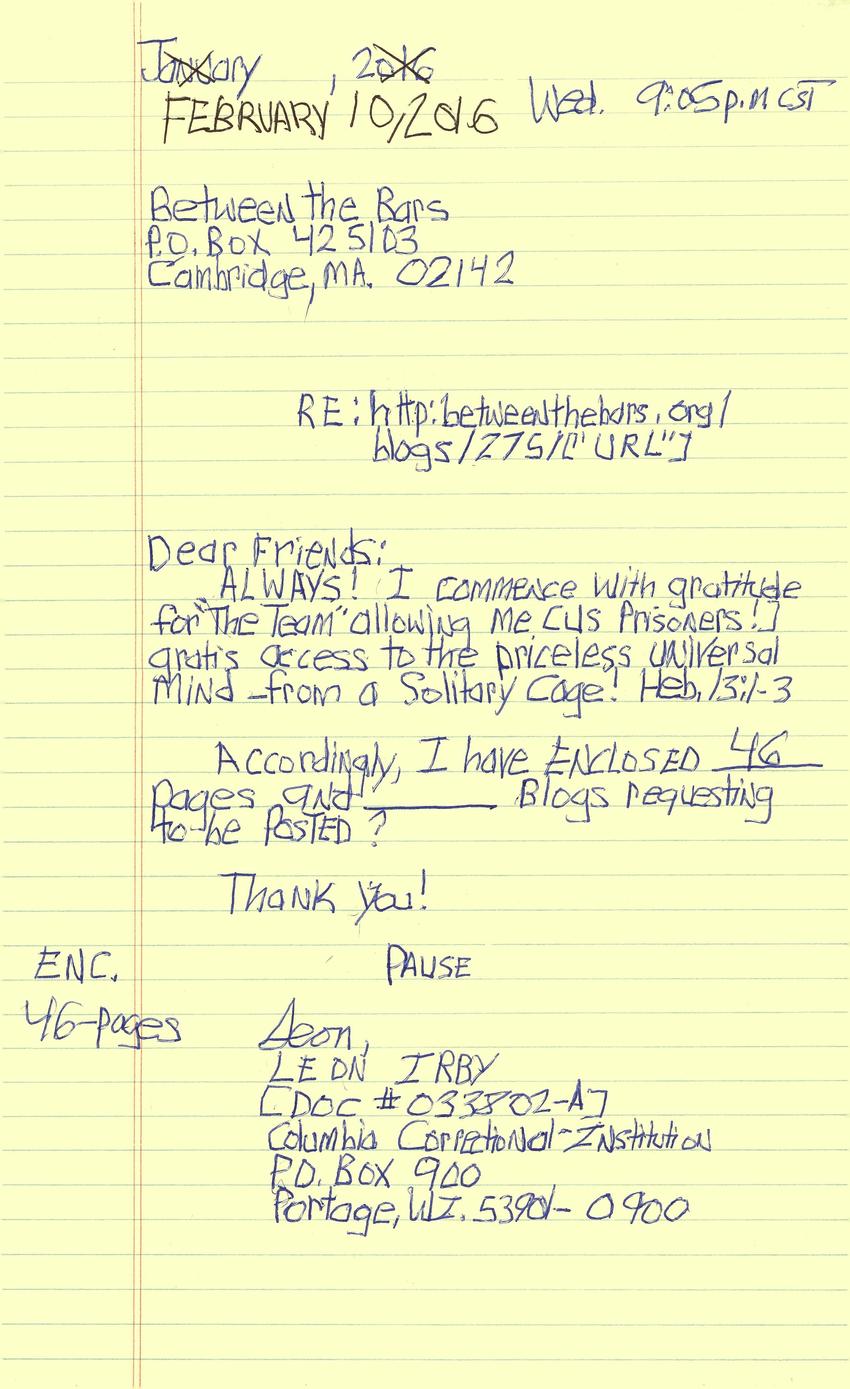 January , 2016
FEBRUARY 10, 2016 Wed. 9:05 p.m CST
Between the Bars
P.O. Box 425103
Cambridge, MA. 02142
RE: http:betweenthebars.org/
blogs/275/["URL"]
Dear Friends:
ALWAYS! I commence with gratitude
for "The Team" allowing me [us Prisoners!]
gratis access to the priceless universal
Mind -from a Solitary Cage! Heb. 13:1-3
Accordingly, I have ENCLOSED 46
pages and ______ Blogs requesting
to-be POSTED?
Thank you!
ENC. PAUSE
46-pages
Leon,
LEON IRBY
[DOC #033802-A]
Columbia Correctional-Institution
P.O. Box 900
Portage, WI. 53901-0900